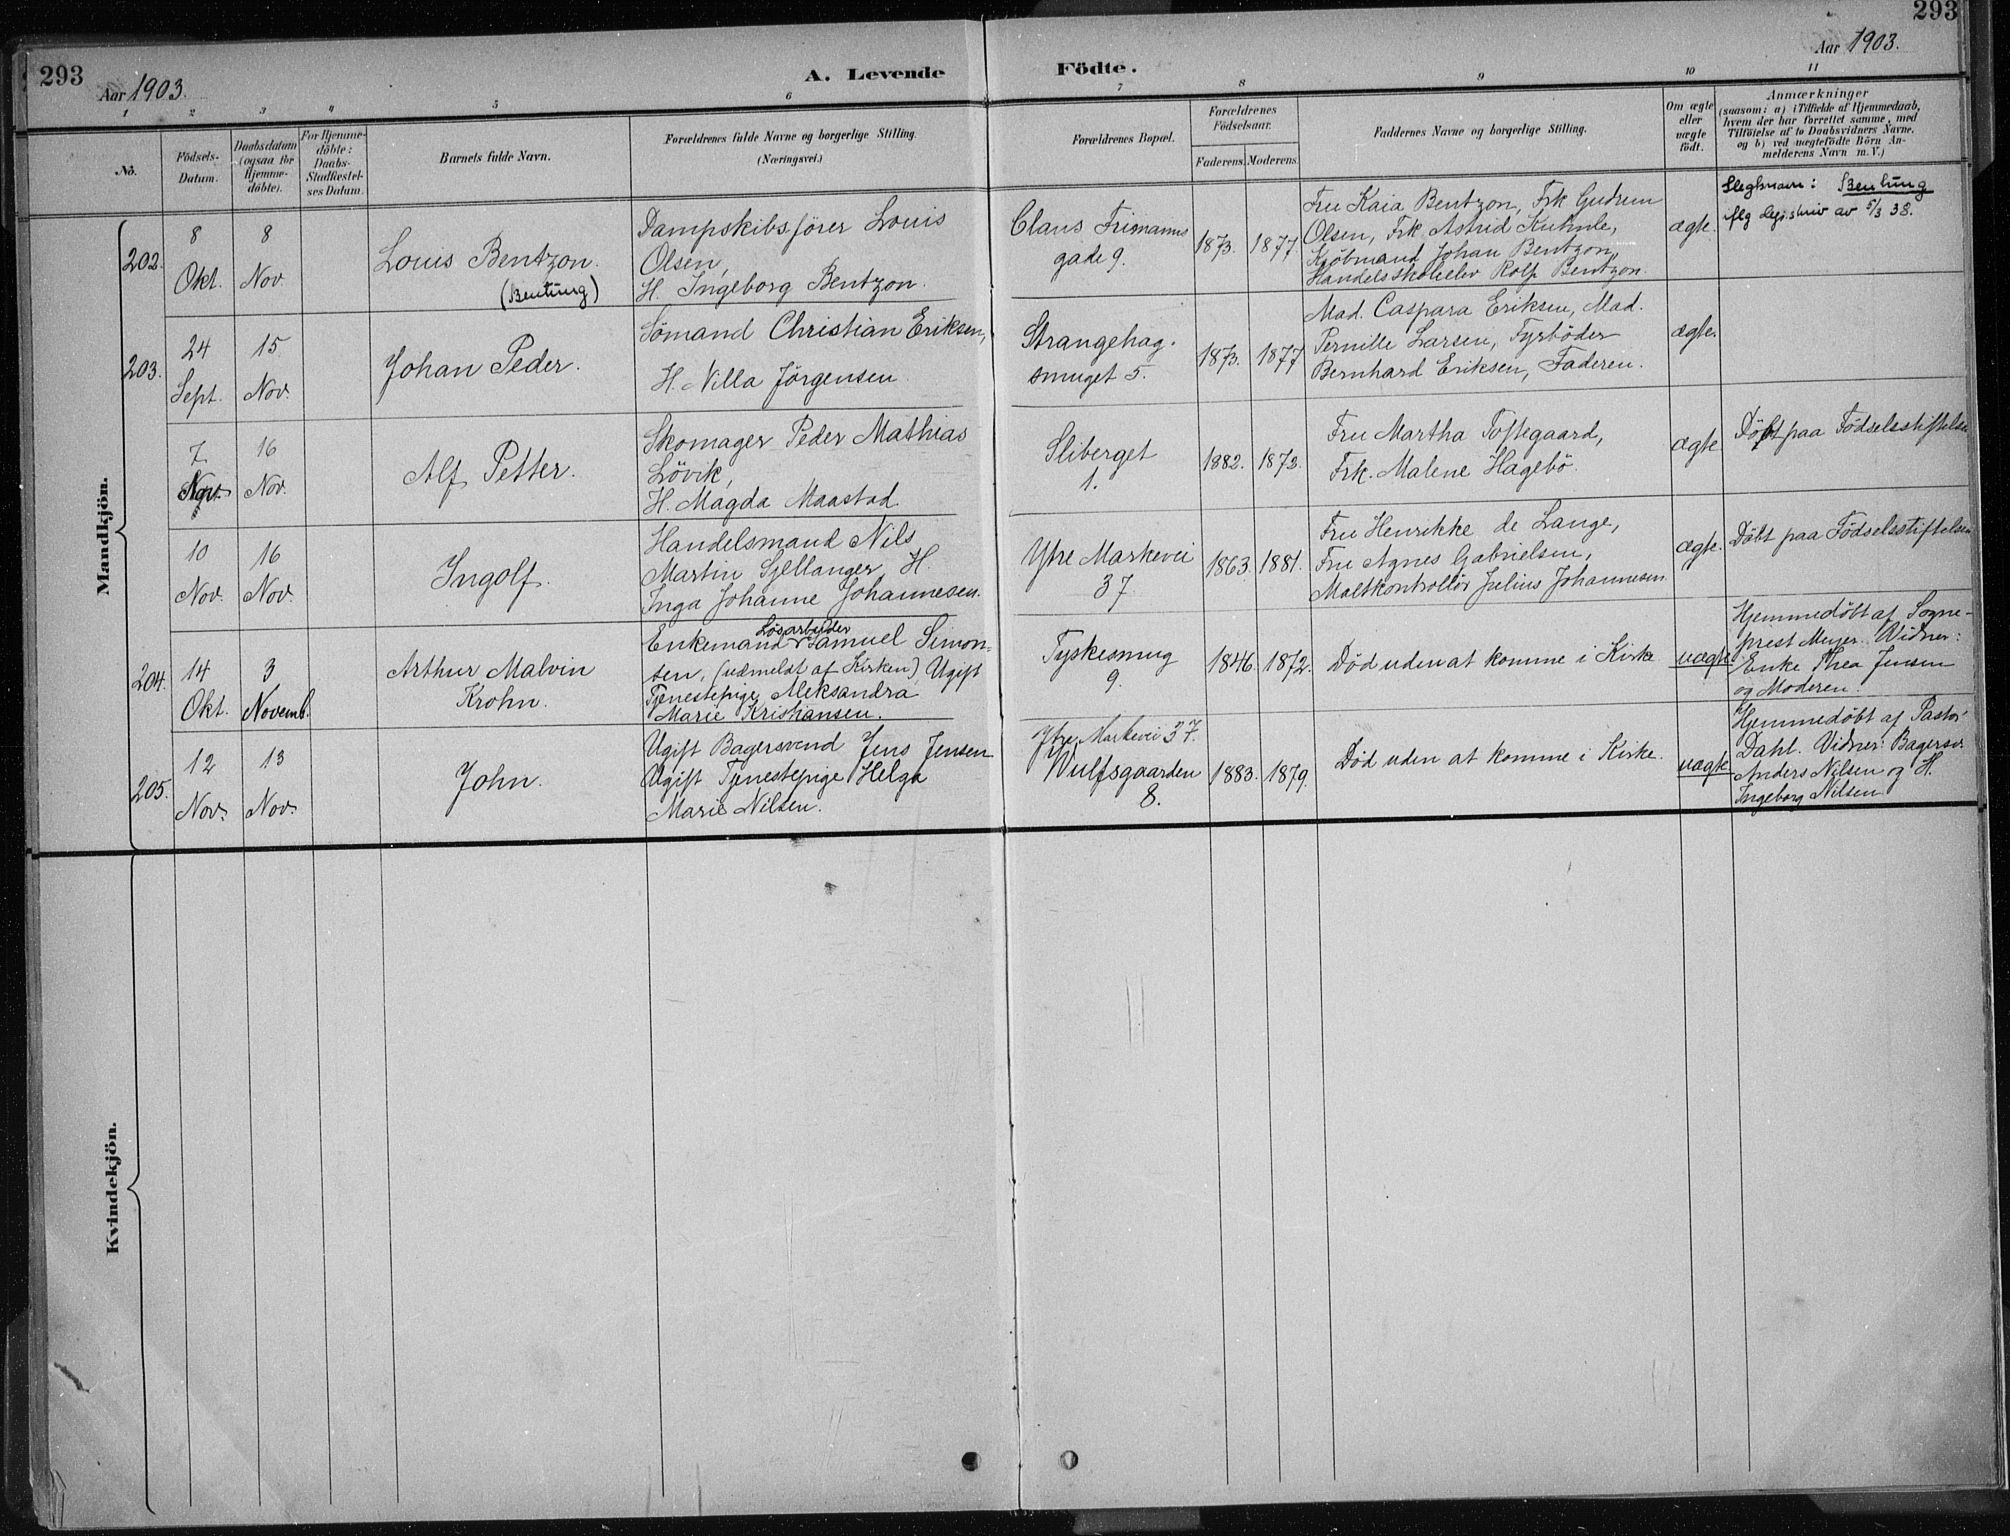 293
Aar 1903.
A. Levende
Födte.
Aar 1903.
293
1
2
3
4
5
6
7
8
9
10
11
No.
Födsels-
Datum.
Daabsdatum
(ogsaa for
Hjemme-
döbte).
For Hjemme-
döbte:
Daabs-
Stadfæstel-
ses Datum.
Barnets fulde Navn.
Forældrenes fulde Navne og borgerlige Stilling.
(Næringsvei.)
Forældrenes Bopæl.
Forældrenes
Födselsaar.
Faderens.
Moderens.
Faddernes Navne og borgerlige Stilling.
Om ægte
eller
uægte
födt.
Anmærkninger
(saasom: a) i Tilfælde af Hjemmedaab,
hvem der har forrettet samme, med
Tilföielse af to Daabsvidners Navne.
og b) ved uægtefödte Börn An-
melderens Navn m. V.)
Mandkjön.
202.
8
Okt.
8
Nov
Louis Bentzon.
(Bentung)
Dampskibsförer Louis
Olsen,
H. Ingeborg Bentzon.
Claus Frimanns
gade 9.
1873.
1877
Fru Kaia Bentzon, Frk Gudrun
Olsen, Frk. Astrid Kuhnle,
Kjöbmand Johan Bentzon,
Handelsskoleelev Rolf Bentzon.
ægte.
Slegtsnavn: Bentung
iflg. av 5/3 38.
203.
24
Sept.
15
Nov.
Johan Peder.
Sömand Christian Eriksen,
H. Nilla Jörgensen.
Strangehag.
smuget 5.
1873.
1877
Mad. Caspara Eriksen, Mad.
Pernille Larsen, Fyrböder
Bernhard Eriksen, Faderen.
ægte.
7
Nov.
16
Nov.
Alf Petter.
Skomager Peder Mathias
Lövik,
H. Magda Maastad
Sliberget
1.
1882.
1873.
Fru Martha Toftegaard,
Frk. Malene Hagebö.
ægte
Døbt paa Fødselsstiftelsen
10
Nov.
16
Nov.
Ingolf.
Handelsmand Nils
Martin Sjellanger, H.
Inga Johanne Johannesen.
Ytre Markevei
37.
1863.
1881.
Fru Henrikke de Lange,
Fru Agnes Gabrielsen,
Maltkontrollör Julius Johannesen.
ægte.
Døbt paa Fødselsstiftelsen
204.
14
Okt.
3
Novemb.
Arthur Malvin
Krohn.
Løsarbeider
Enkemand Samuel Simon-
sen, (udmeldt af Kirken) Ugift
Tjenestepige Aleksandra
Marie Kristiansen.
Tyskesmug
9.
1846.
1872.
Død uden at komme i Kirke
uægte
Hjemmedøbt af Sogne-
prest Meyer. Vidner:
Enke Thea Jensen
og Moderen.
205.
12
Nov.
13
Nov.
John.
Ugift Bagersvend Jens Jensen
Ugift Tjenestepige Helga
Marie Nilsen.
Ytre Markevei 37.
Wulfsgaarden
8.
1883.
1879.
Død uden at komme i Kirke.
uægte
Hjemmedøbt af Pastor
Dahl. Vidner: Bagersv
Anders Nilsen og H.
Ingeborg Nilsen
Kvindekjön.